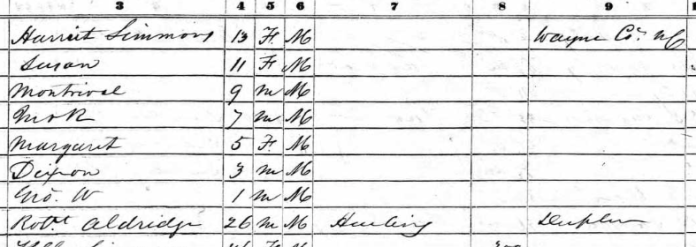 3 4 5 6 7 8 9
Harriet Simmons 13 F M Wayne Co. NC
Susan 11 F M
Montrival 9 m M
7 m M
Margaret 5 F M
Dixon 3 m M
Geo. W 1 m M
Robt. Aldridge 26 m M Duplin